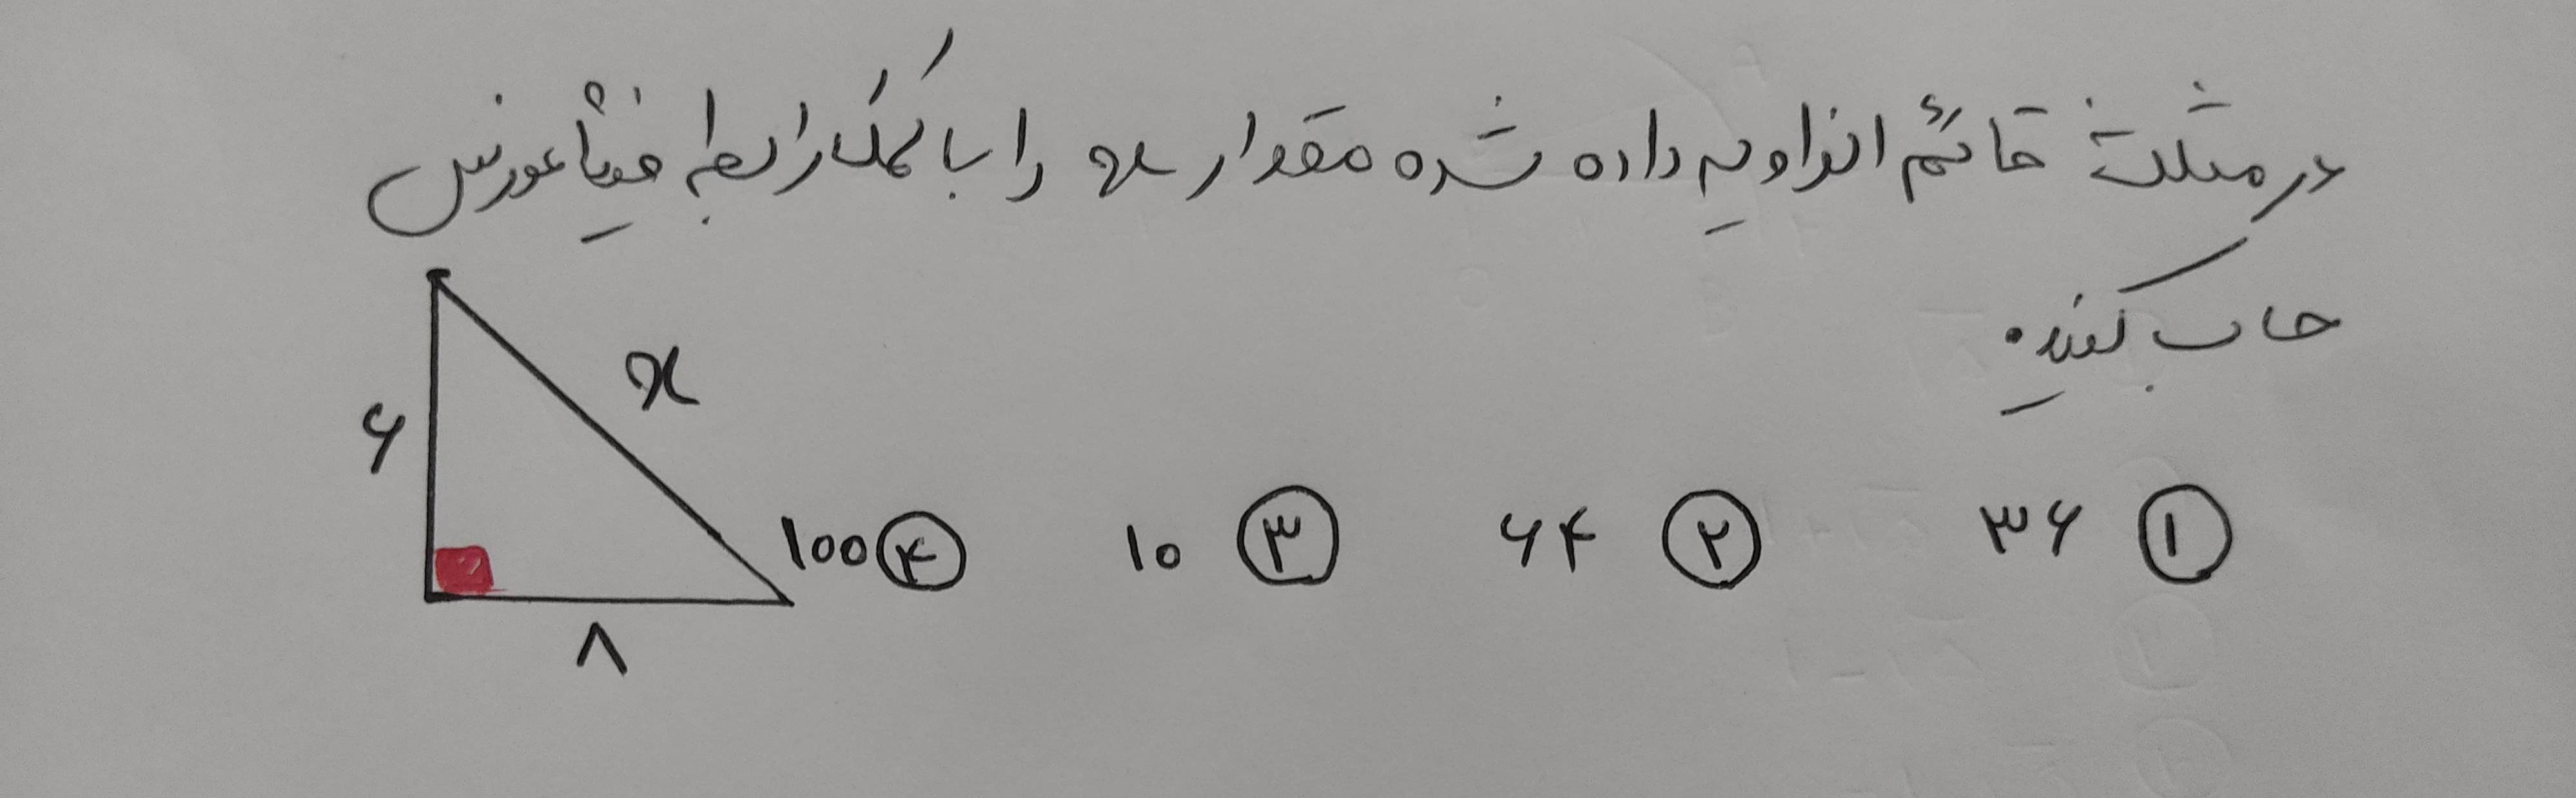 در مثلث قائم الزاویه داده شده مقدار x را با کمک رابطه فیثاغورس
حساب کنید.
x
۶
۱ ۳۶ ۲ ۶۴ ۳ ۱۰ ۴ ۱۰۰
۸